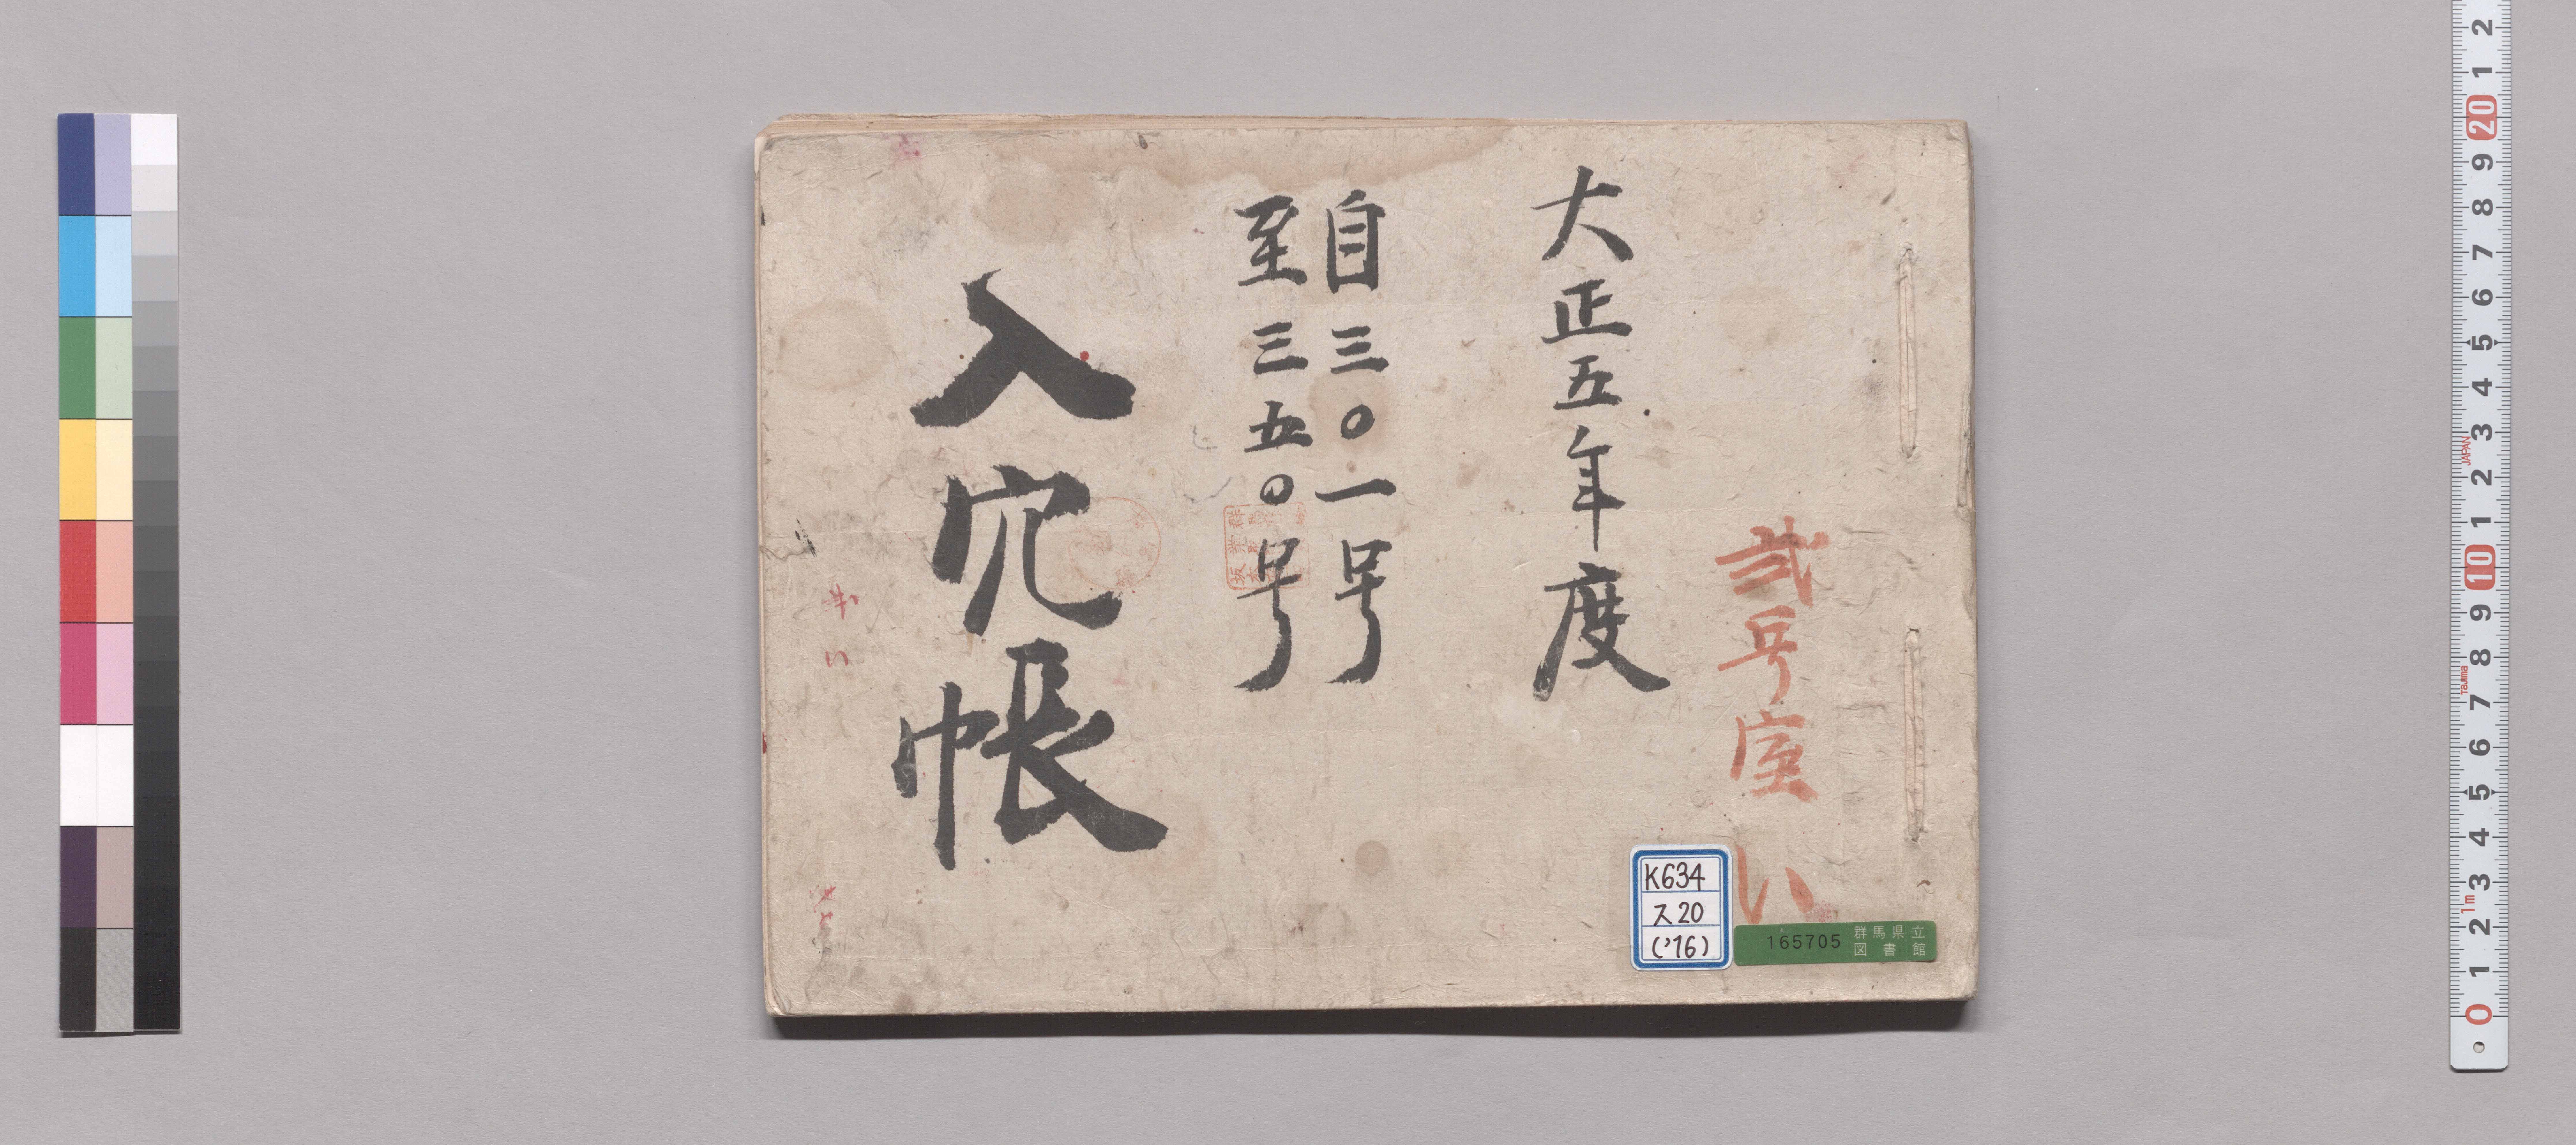 弐号室
い
大正五年度
自三〇一号
至三五〇号
入穴帳
K634
ス20
('16)
165705
群馬県立
図書館